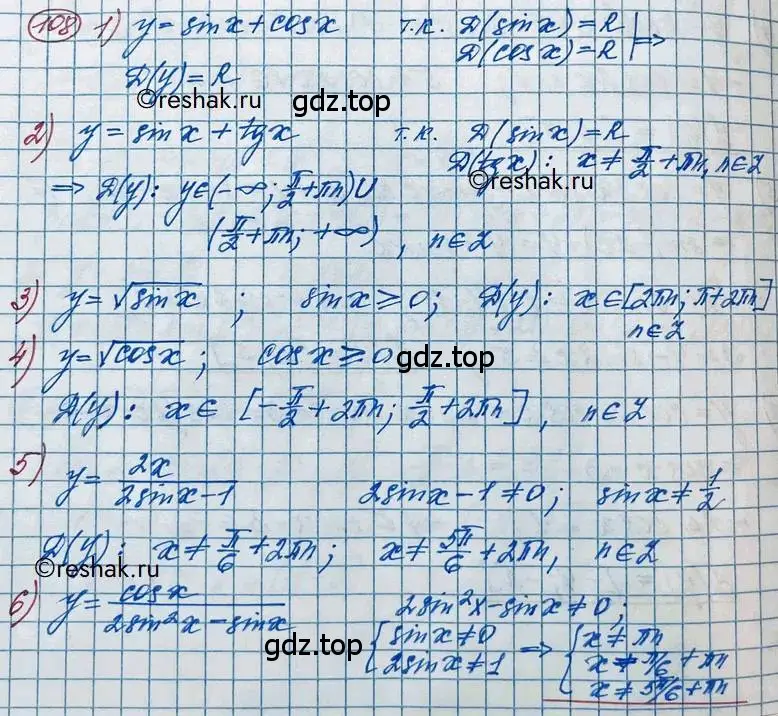 108 1) y = sin x + cos x т.к. D(sin x) = R
D(cos x) = R | ⇒
D(y) = R
©reshak.ru gdz.top
2) y = sin x + tg x т.к. D(sin x) = R
D(tg x): x ≠ π/2 + πn, n ∈ Z
©reshak.ru
⇒ D(y): y ∈ (-∞; π/2 + πn) ∪
(π/2 + πn; +∞), n ∈ Z
3) y = √sin x ; sin x ≥ 0; D(y): x ∈ [2πn; π + 2πn]
n ∈ Z
4) y = √cos x ; cos x ≥ 0
gdz.top
D(y): x ∈ [-π/2 + 2πn; π/2 + 2πn], n ∈ Z
5) y = 2x / (2 sin x - 1) 2 sin x - 1 ≠ 0; sin x ≠ 1/2
D(y): x ≠ π/6 + 2πn; x ≠ 5π/6 + 2πn, n ∈ Z
©reshak.ru
6) y = cos x / (2 sin² x - sin x) 2 sin² x - sin x ≠ 0;
gdz.top
{ sin x ≠ 0 ⇒ { x ≠ πn
2 sin x ≠ 1 x ≠ π/6 + πn
x ≠ 5π/6 + πn